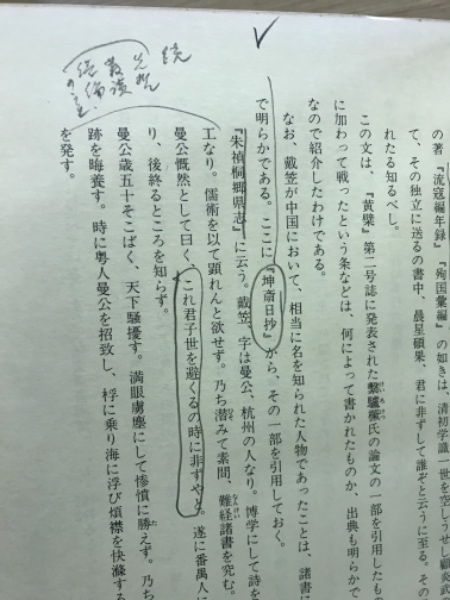 の著『流寇編年録』『殉国彙編』の如きは、清初学識一世を空しうし顧炎武
て、その独立に送るの書中、晨星碩果、君に非ずして誰ぞと云うに至る。その
れたる知るべし。
この文は、『黄檗』第二号誌に発表された繫驢橛氏の論文の一部を引用したもの
に加わって戦ったという条などは、何によって書かれたものか、出典も明らかで
なので紹介したわけである。
なお、戴笠が中国において、相当に名を知られた人物であったことは、諸書に
で明らかである。ここに『坤斎日抄』から、その一部を引用しておく。
『朱禎桐郷県志』に云う。戴笠、字は曼公、杭州の人なり。博学にして詩を
工なり。儒術を以て顕れんと欲せず。乃ち潜みて素問、難経諸書を究む。
曼公慨然として曰く、これ君子世を避くるの時に非ずやと。遂に番禺人に
り、後終るところを知らず。
曼公歳五十そこばく、天下騒擾す。満眼虜塵にして惨憤に勝えず。乃ち
跡を晦養す。時に粤人曼公を招致し、桴に乗り海に浮び煩襟を快滌する
を発す。